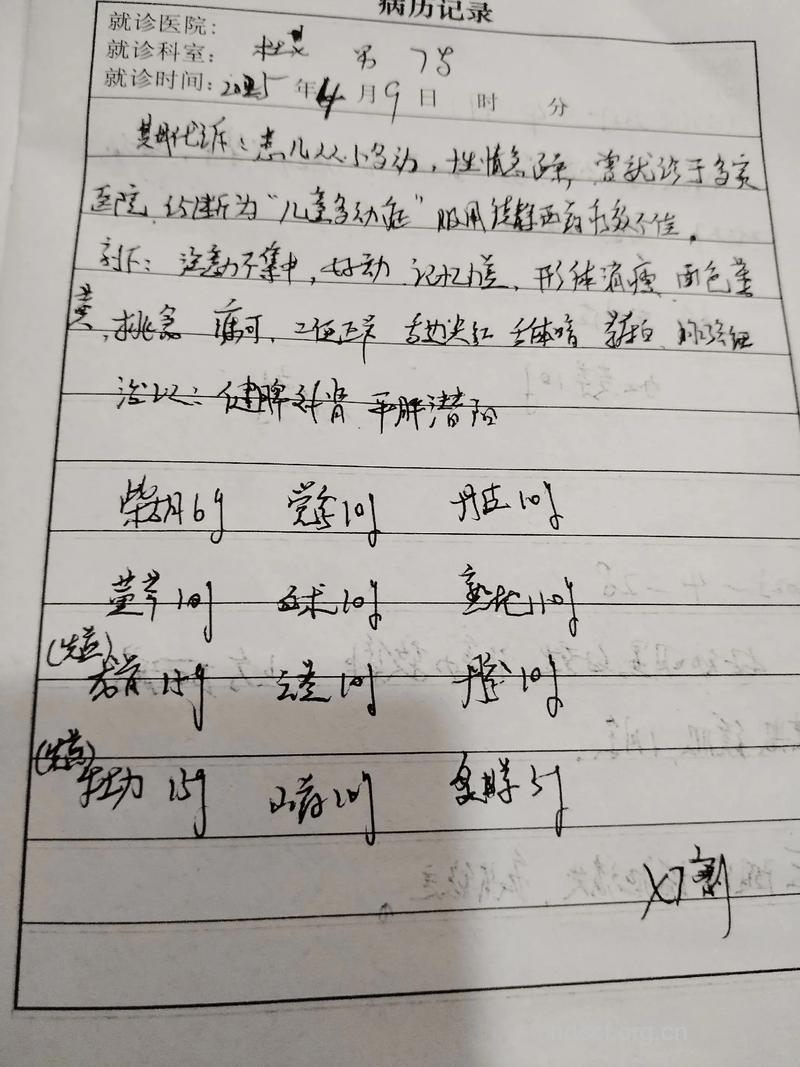 病历记录
就诊医院:
就诊科室: 男 7岁
就诊时间: 2025 年 4 月 9 日 时 分
其母代诉：患儿从小多动，性情急躁，曾就诊于多家
医院，诊断为“儿童多动症”服用 西药 效不佳。
刻下：注意力不集中，好动 记忆力差，形体消瘦 面色萎
黄，挑食 寐可，二便正常 舌边尖红 舌体暗 苔白 脉弦细
治以：健脾补肾 平肝潜阳
柴胡6g 党参10g 丹皮10g
黄芩10g 白术10g 熟地10g
(先煎)
龙骨15g 云苓10g 丹参10g
(先煎)
牡力 15g 山药20g 炙草5g
X7剂